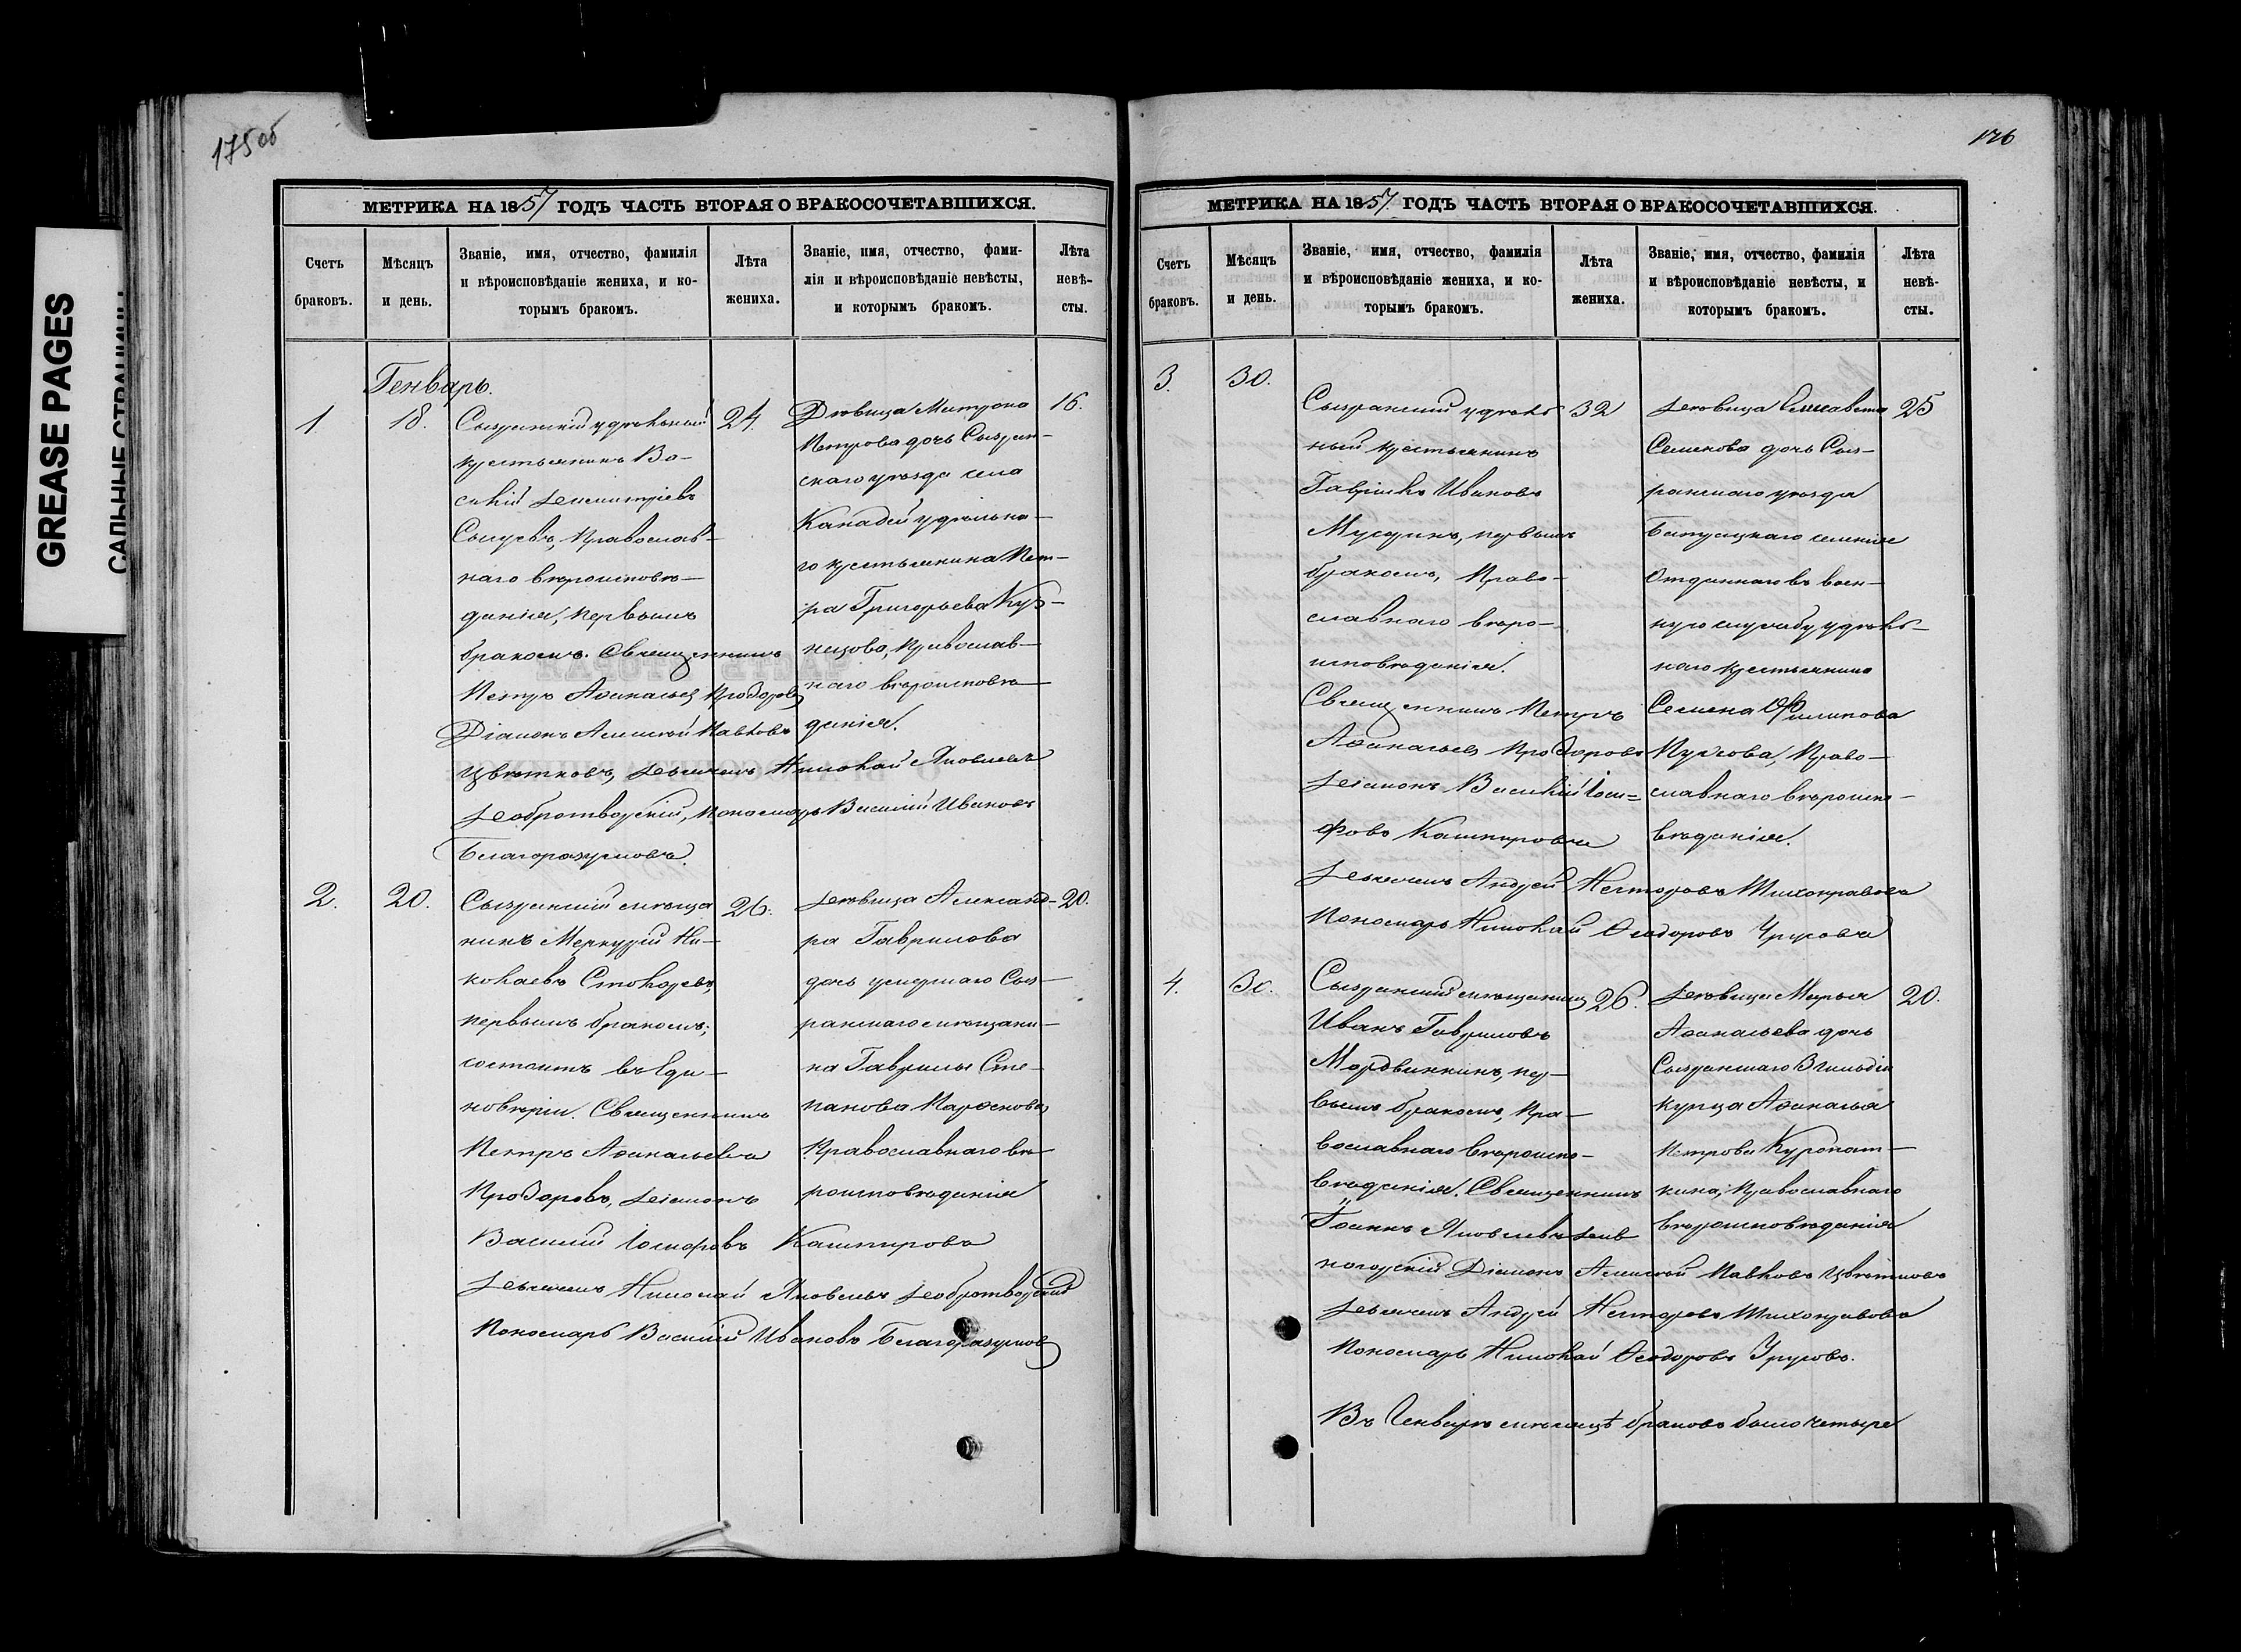 GREASE PAGES
САЛЬНЫЕ СТРАНИЦЫ
175об
МЕТРИКА НА 1857 ГОДЪ ЧАСТЬ ВТОРАЯ О БРАКОСОЧЕТАВШИХСЯ.
Счетъ браковъ.
Мѣсяцъ и день.
Званіе, имя, отчество, фамилія
и вѣроисповѣданіе жениха, и ко-
торымъ бракомъ.
Лѣта жениха.
Званіе, имя, отчество, фами-
лія и вѣроисповѣданіе невѣсты,
и которымъ бракомъ.
Лѣта невѣ-
сты.
Генварь.
1.
18.
Сызранскій удѣльный
крестьянинъ Ва-
силій Димитріевъ
православ-
наго вѣроисповѣ-
данія, первымъ
бракомъ. Священникъ
Петръ Аѳанасьевъ Прозоровъ
Діаконъ Алексѣй Павловъ
Цвѣтковъ, Дьячекъ Николай Яковлевъ
Добротворскій, Пономарь Василій Ивановъ
Благоразумовъ.
24.
Дѣвица Матрона
Петрова дочь Сызран-
скаго уѣзда села
Канадей удѣльна-
го крестьянина Пет-
ра Григорьева Куз-
нецова, православ-
наго вѣроисповѣ-
данія.
16.
2.
20.
Сызранскій мѣща
нинъ Меркурій Ни-
колаевъ Столяровъ,
первымъ бракомъ;
состоитъ въ Еди-
новѣріи. Священникъ
Петръ Аѳанасьевъ
Прозоровъ, Діаконъ
Василій Іосифовъ Кашпировъ
Дьячекъ Николай Яковлевъ Добротворскій
Пономарь Василій Ивановъ Благоразумовъ
26.
Дѣвица Александ-
ра Гаврилова
дочь умершаго Сыз-
ранскаго мѣщани-
на Гаврилы Сте-
панова
Православнаго вѣ-
роисповѣданія
20.
176
МЕТРИКА НА 1857 ГОДЪ ЧАСТЬ ВТОРАЯ О БРАКОСОЧЕТАВШИХСЯ.
Счетъ браковъ.
Мѣсяцъ и день.
Званіе, имя, отчество, фамилія
и вѣроисповѣданіе жениха, и ко-
торымъ бракомъ.
Лѣта жениха.
Званіе, имя, отчество, фамилія
и вѣроисповѣданіе невѣсты, и
которымъ бракомъ.
Лѣта невѣ-
сты.
3.
30.
Сызранскій удѣль
ный крестьянинъ
Гавріилъ Ивановъ
первымъ
бракомъ, Право-
славнаго вѣро-
исповѣданія.
Священникъ Петръ
Аѳанасьевъ Прозоровъ
Діаконъ Василій Іоси=
фовъ Кашпировъ
Дьячекъ Андрей Несторовъ Тихонравовъ
Пономарь Николай Ѳеодоровъ Урусовъ
32
Дѣвица Елисавета
Семенова дочь Сыз-
ранскаго уѣзда
селенія
Отданнаго въ воен-
ную службу удѣль-
наго крестьянина
Семена Филипова
Право-
славнаго вѣроиспо-
вѣданія.
25
4.
30.
Сызранскій мѣщанинъ
Иванъ Гавриловъ
Мордвинкинъ, пер-
вымъ бракомъ, Пра-
вославнаго вѣроиспо-
вѣданія. Священникъ
Іоаннъ Яковлевъ Див
ногорскій Діаконъ Алексѣй Павловъ Цвѣтковъ
Дьячекъ Андрей Несторовъ Тихонравовъ
Пономарь Николай Ѳеодоровъ Урусовъ.
26.
Дѣвица Марья
Аѳанасьева дочь
Сызранскаго 3 гильдіи
купца Аѳанасья
Петрова Куропат-
кина, Православнаго
вѣроисповѣданія
20.
Въ Генварѣ мѣсяцѣ браковъ было четыре